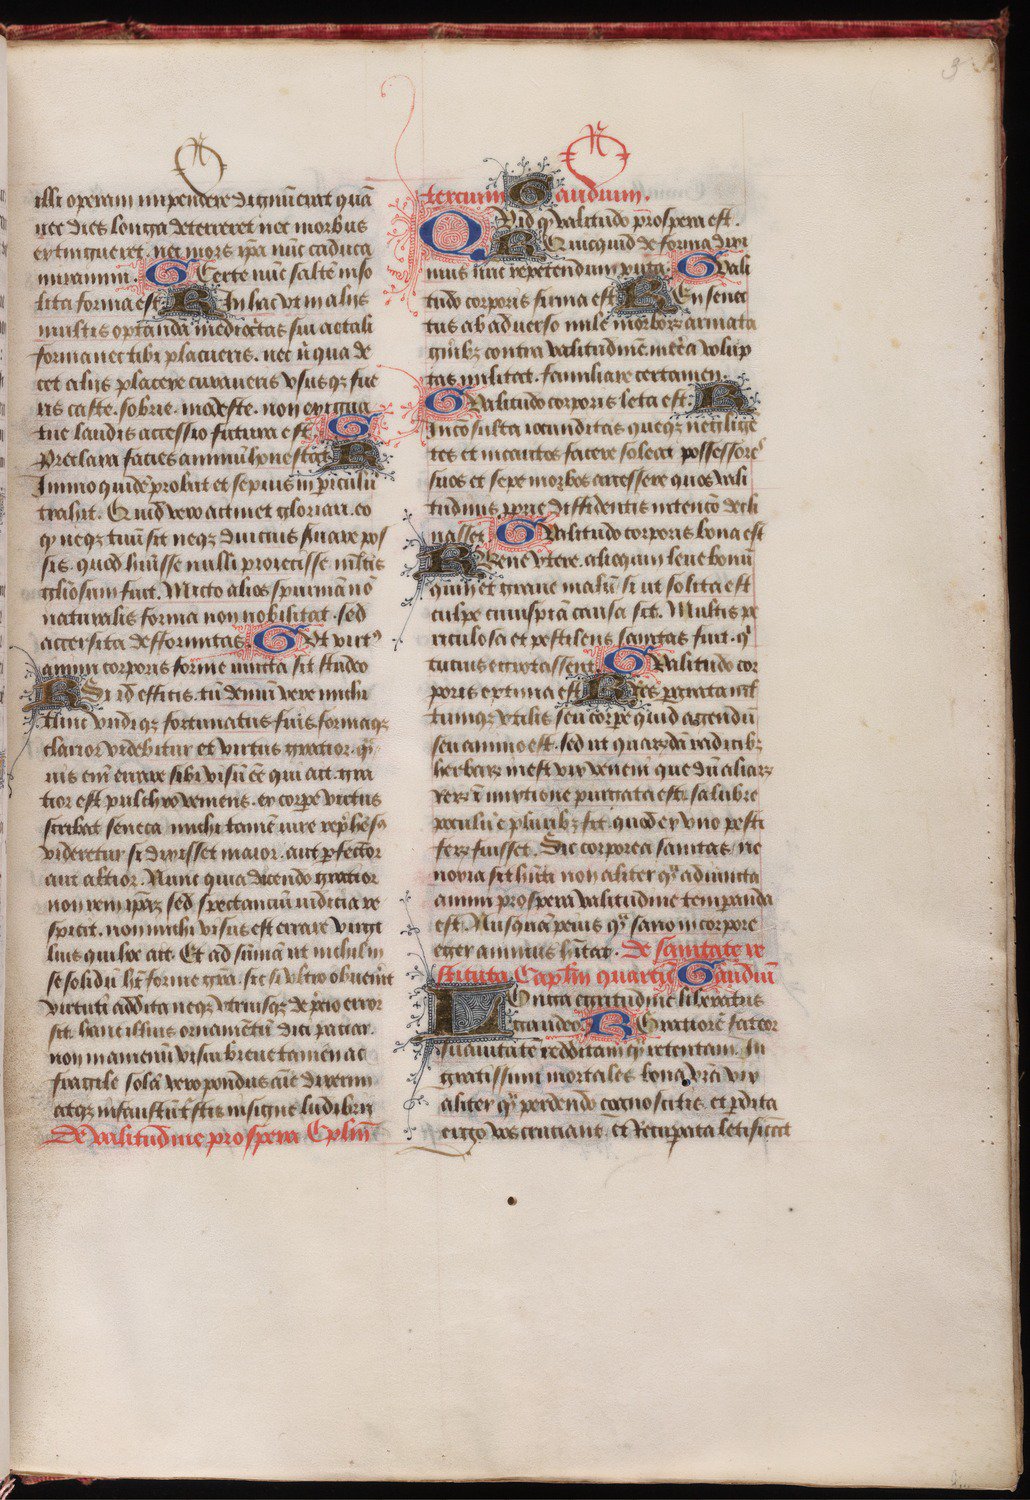 3
illi operam impendere dignū erat quā
nec dies longa deterreret nec morbus
extingueret. nec mors ip̄a nūc caduca
miramini. G Certe nūc saltē inso
lita forma est. R In hac vt in alijs
multis optanda mediocͥtas sui at tali
forma nec tibi placueris. nec
cet alijs placere curaueris vsusqȝ fue
ris caste. sobrie. modeste. non exigua
tue laudis accessio futura est. G
Preclara facies animū honestat. R
Immo quidē probat et sepius in ꝑiculū
trahit. Quid vero attinet gloriari. eo
qͥ neqȝ tuū sit neqȝ diucius seruare pos
sis. quod hūisse nulli pro
gliosum fuit. Mitto alios spurinā nō
naturalis forma non nobilitat. sed
accersita defformitas. G Vt virtꝰ
animi corporis forme iuncta sit studeo
R Si id effitis. tū demū vere michi
tūnc vndiqȝ fortunatus fuis formaqȝ
clarior videbitur et virtus gratior. qͣ
uis eni errare sibi visū ēē qui ait. gra
tior est pulchro veniens. ex corpe virtus
scribat seneca michi tamē iure rep̄hēsꝰ
videretur si dixisset maior. aut ꝑfectior
aut altior. Nunc quia dicendo gratior
non rem ip̄aȝ sed spectanciū iudicia re
spicit. non michi visus est errare virgi
lius qui hoc ait. Et ad sūmā ut nichil in
se solidū hꝫ forme gͬa. sic si vltro obuenͥt
virtuti addita neqȝ vtriusqȝ de p̄cio error
sit. hanc illius ornamētū dici paciar.
non inamenū visu breue tamen ac
fragile solā vero pondus aīe dixerim
atqȝ infaustū t̄stis insigne ludibrij
De valitudine prospera Cplm̄
tercium Gaudium.
QVid qͥ valitudo prospera est.
R Quicquid de forma dixi
mus huc repetendum puta. G Vali
tudo corporis firma est. R En senec
tus ab aduerso mille morborꝝ armata
gn̄ibꝫ contra valitudinē int̄ea volup
tas militat. familiare certamen.
G Valitudo corporis leta est. R
Inconsulta iocunditas queqȝ negligē
tes et incautos facere soleat possessoreˢ
suos et sepe morbos accessere quos vali
tudinis proprie diffidentis intenco decli
nasset. G Valitudo corporis bona est
R Bene vtere. alioquin leue bonū
quin et graue malū si ut solita est
culpe cuiuspiā causa sit. Multis pe
riculosa et pestilens sanitas fuit. qͥ
tucius egrotassent. G Valitudo cor
poris eximia est. R Res ꝑgrata m̄l
tumqȝ vtilis seu corpe quid agendū
seu animo est. sed ut quarūdā radicibȝ
herbarꝝ inest vis veneni que dū aliarꝝ
rerꝝ ī mixtione purgata est. salubre
poculū e pluribȝ fit. quod ex vno pesti
ferꝝ fuisset. Sic corporea sanitas ne
noxia sit hn̄ti non aliter qͣ adiuncta
animi prospera valitudine temperanda
est. Nusquā peius qͣ sano in corpore
eger animus hītat. De sanitate re
stituta Caplm̄ quartū Gaudiū
LOnga egritudine liberatus
gaudeo. R Gratiorē fateor
suauitatē redditam qͣ retentam. In
gratissimi mortales bona vr̄a vix
aliter qͣ perdendo cognoscitis et ꝑdita
ergo vos cruciant. et recuperata letificāt